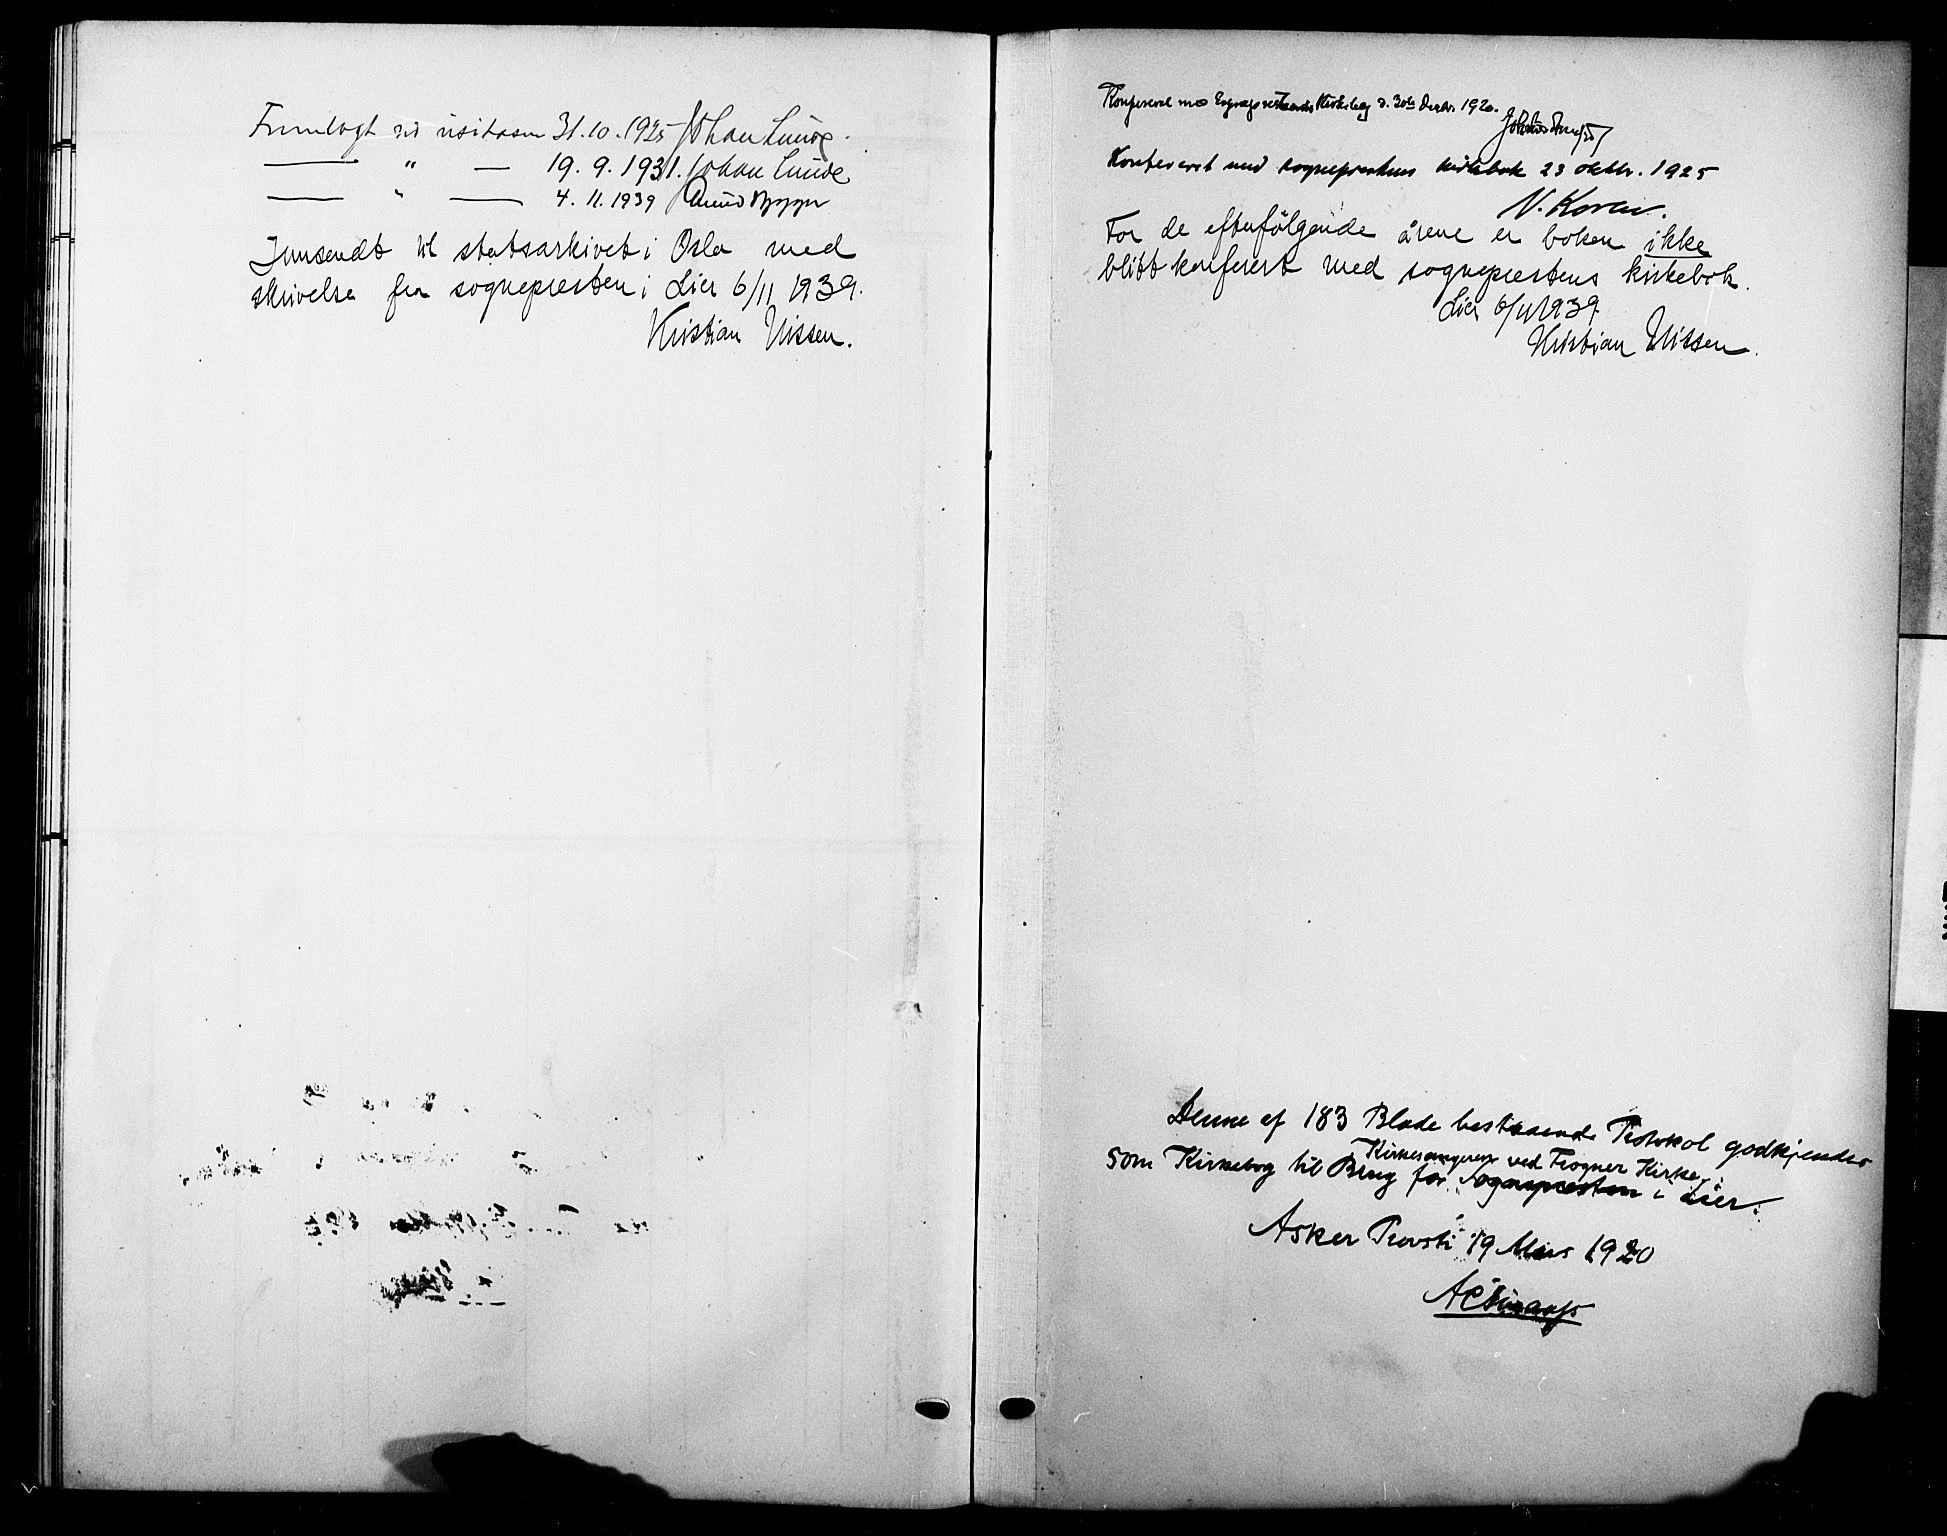 Fremlagt ved visitasen 31.10.1925 Johan Lunde.
— " — 19.9.1931. Johan Lunde
— " — 4.11.1939
Innsendt til statsarkivet i Oslo med
skrivelse fra sognepresten i Lier 6/11 1939.
Kristian Nissen.
Konfereret med Sogneprestens Kirkebog d. 30te Decbr. 1920.
Konferert med sogneprestens kirkebok 23 oktbr. 1925
N. Koren.
For de efterfölgende årene er boken ikke
blitt konferert med sogneprestens kirkebok.
Lier 6/11 1939.
Kristian Nissen.
Denne af 183 Blade bestaaende Protokol godkjendes
Kirkesangeren ved Frogner Kirke
som Kirkebog til Brug for Sognepresten i Lier.
Asker Provsti 19 Mars 1920